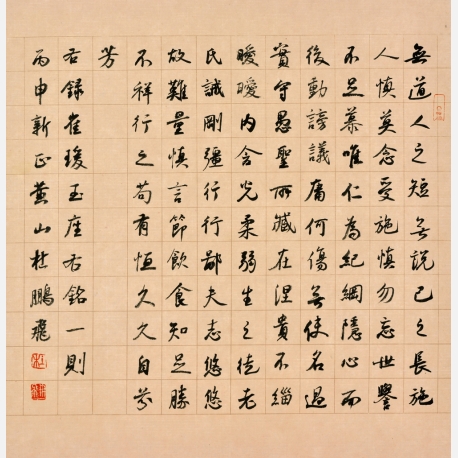 無道人之短無說己之長施
人慎莫念受施慎勿忘世譽
不足慕唯仁為紀綱隱心而
後動謗議庸何傷無使名過
實守愚聖所臧在涅貴不緇
曖曖內含光柔弱生之徒老
氏誡剛彊行行鄙夫志悠悠
故難量慎言節飲食知足勝
不祥行之苟有恒久久自芬
芳
右錄崔瑗玉座右銘一則
丙申新正黃山杜鵬飛